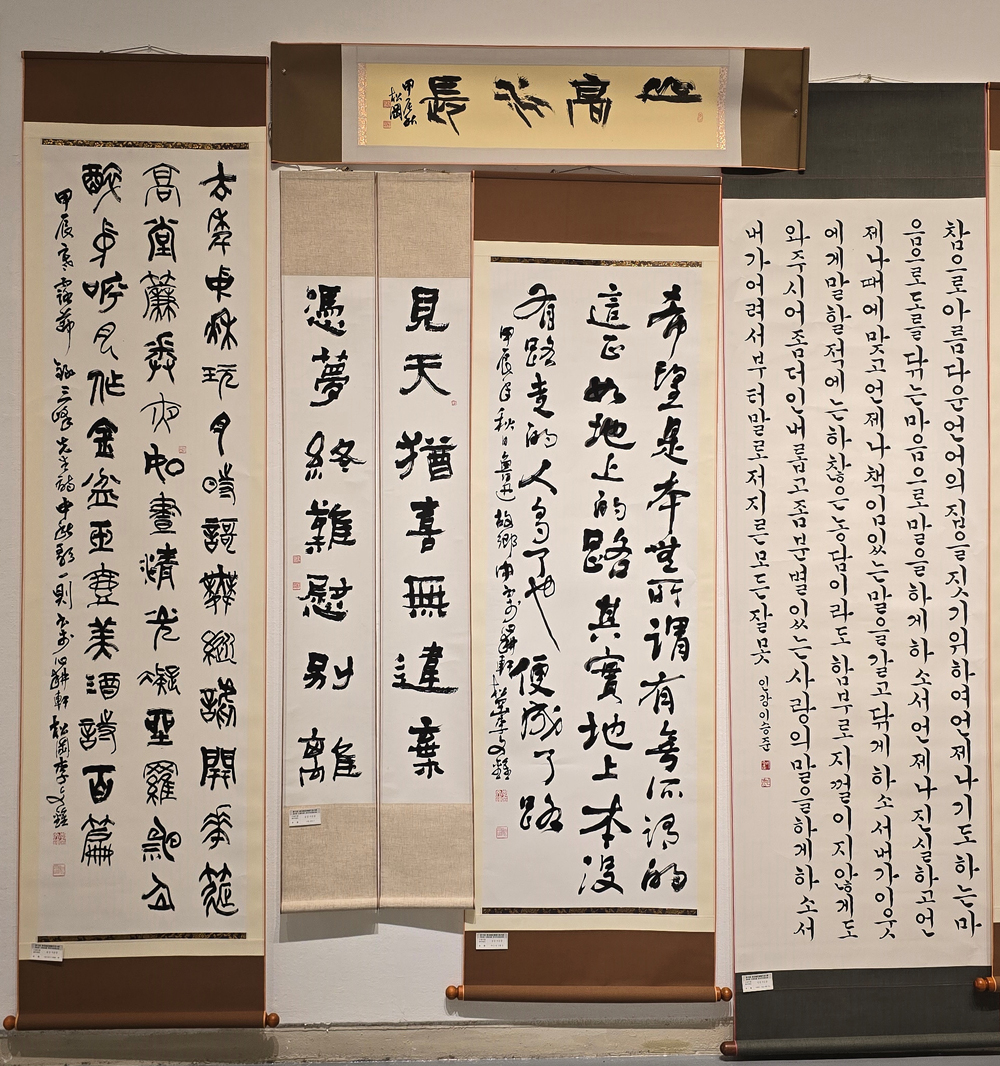 山高水長
甲辰秋 松岡
참으로아름다운언어의집을짓기위하여언제나기도하는마
음으로도를닦는마음으로말을하게하소서언제나진실하고언
제나때에맞고언제나책임있는말을갈고닦게하소서내가이웃
에게말할적에는하찮은농담이라도함부로지껄이지않게도
와주시어좀더인내롭고좀분별있는사랑의말을하게하소서
내가어려서부터말로저지른모든잘못 인강이승준
希望是本無所謂有無所謂的
這正如地上的路其實地上本沒
有路走的人多了也便成了路
甲辰年秋日魯迅故鄉中句
見天猶喜無違棄
憑夢終難慰別離
去年中秋玩月時謌舞開華筵
高堂簾捲夜如晝清光凝羅立
醉呼月作金盆美酒詩百篇
甲辰寒露節 錄三峰先生詩中秋歌一則 軒 松岡李文